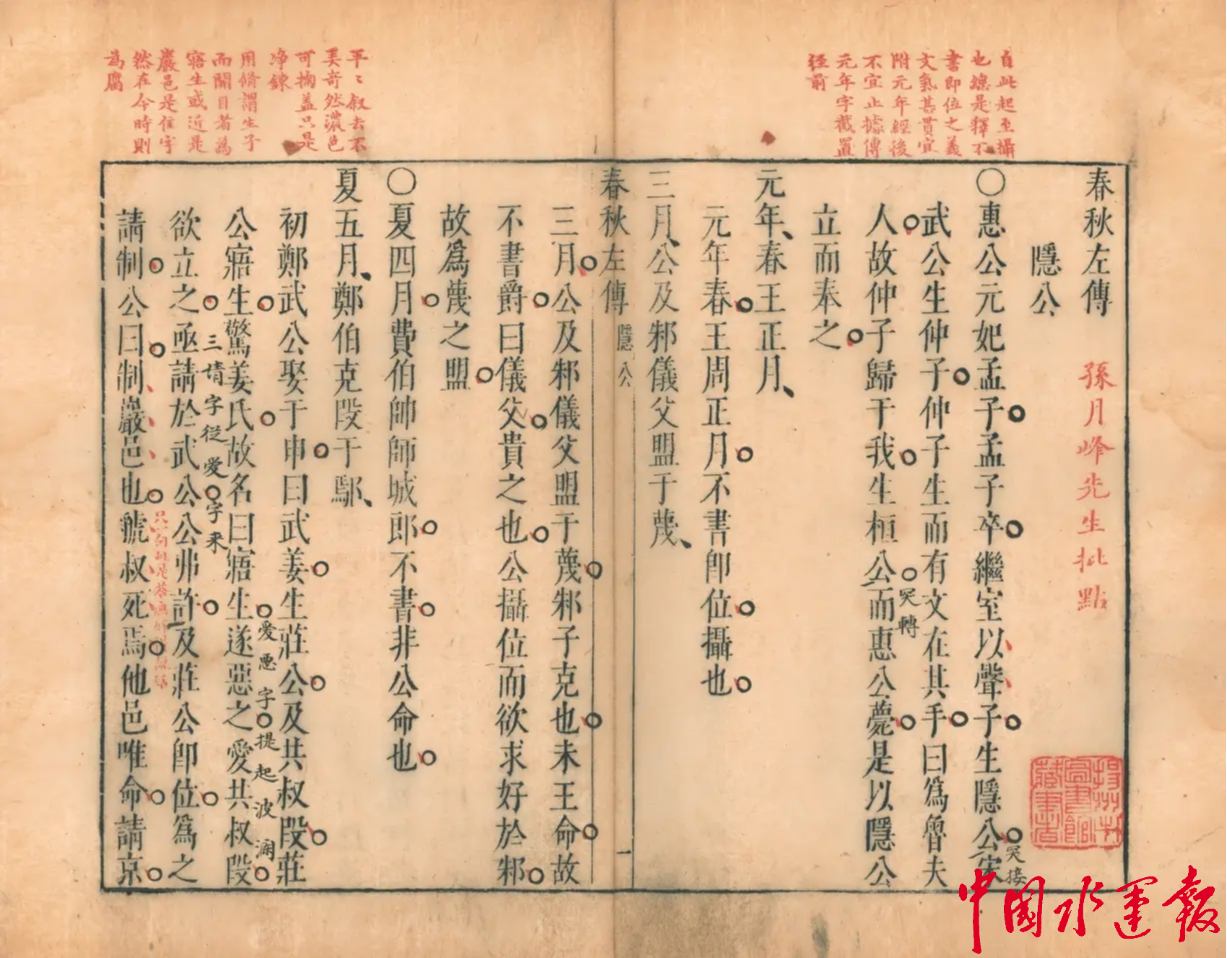 自此起至攝
也總是釋不
書即位之義
文氣甚貫宜
附元年經後
不宜止據傳
元年字截置
經前
平〻叙去不
見奇然濃色
可掬蓋只是
净鍊
用脩謂生子
而開目者為
寤生或近是
巖邑是佳字
然在今時則
為腐
春秋左傳 孫月峰先生批點
隱公
〇惠公元妃孟子孟子卒繼室以聲子生隱公宋
突接
武公生仲子仲子生而有文在其手曰爲魯夫
人故仲子歸于我生桓公而惠公薨是以隱公
突轉
立而奉之
元年、春王正月、
元年春王周正月不書卽位攝也
三月、公及邾儀父盟于蔑、
春秋左傳 隱公 一
三月公及邾儀父盟于蔑邾子克也未王命故
不書爵曰儀父貴之也公攝位而欲求好於邾
故爲蔑之盟
〇夏四月費伯帥師城郎不書非公命也
夏五月、鄭伯克段于鄢、
初鄭武公娶于申曰武姜生莊公及共叔段莊
公寤生驚姜氏故名曰寤生遂惡之愛共叔段
愛惡字提起波瀾
欲立之亟請於武公公弗許及莊公卽位爲之
三請字從愛字來
請制公曰制巖邑也虢叔死焉他邑唯命請京
揚州市圖書館藏書者
中国水運報